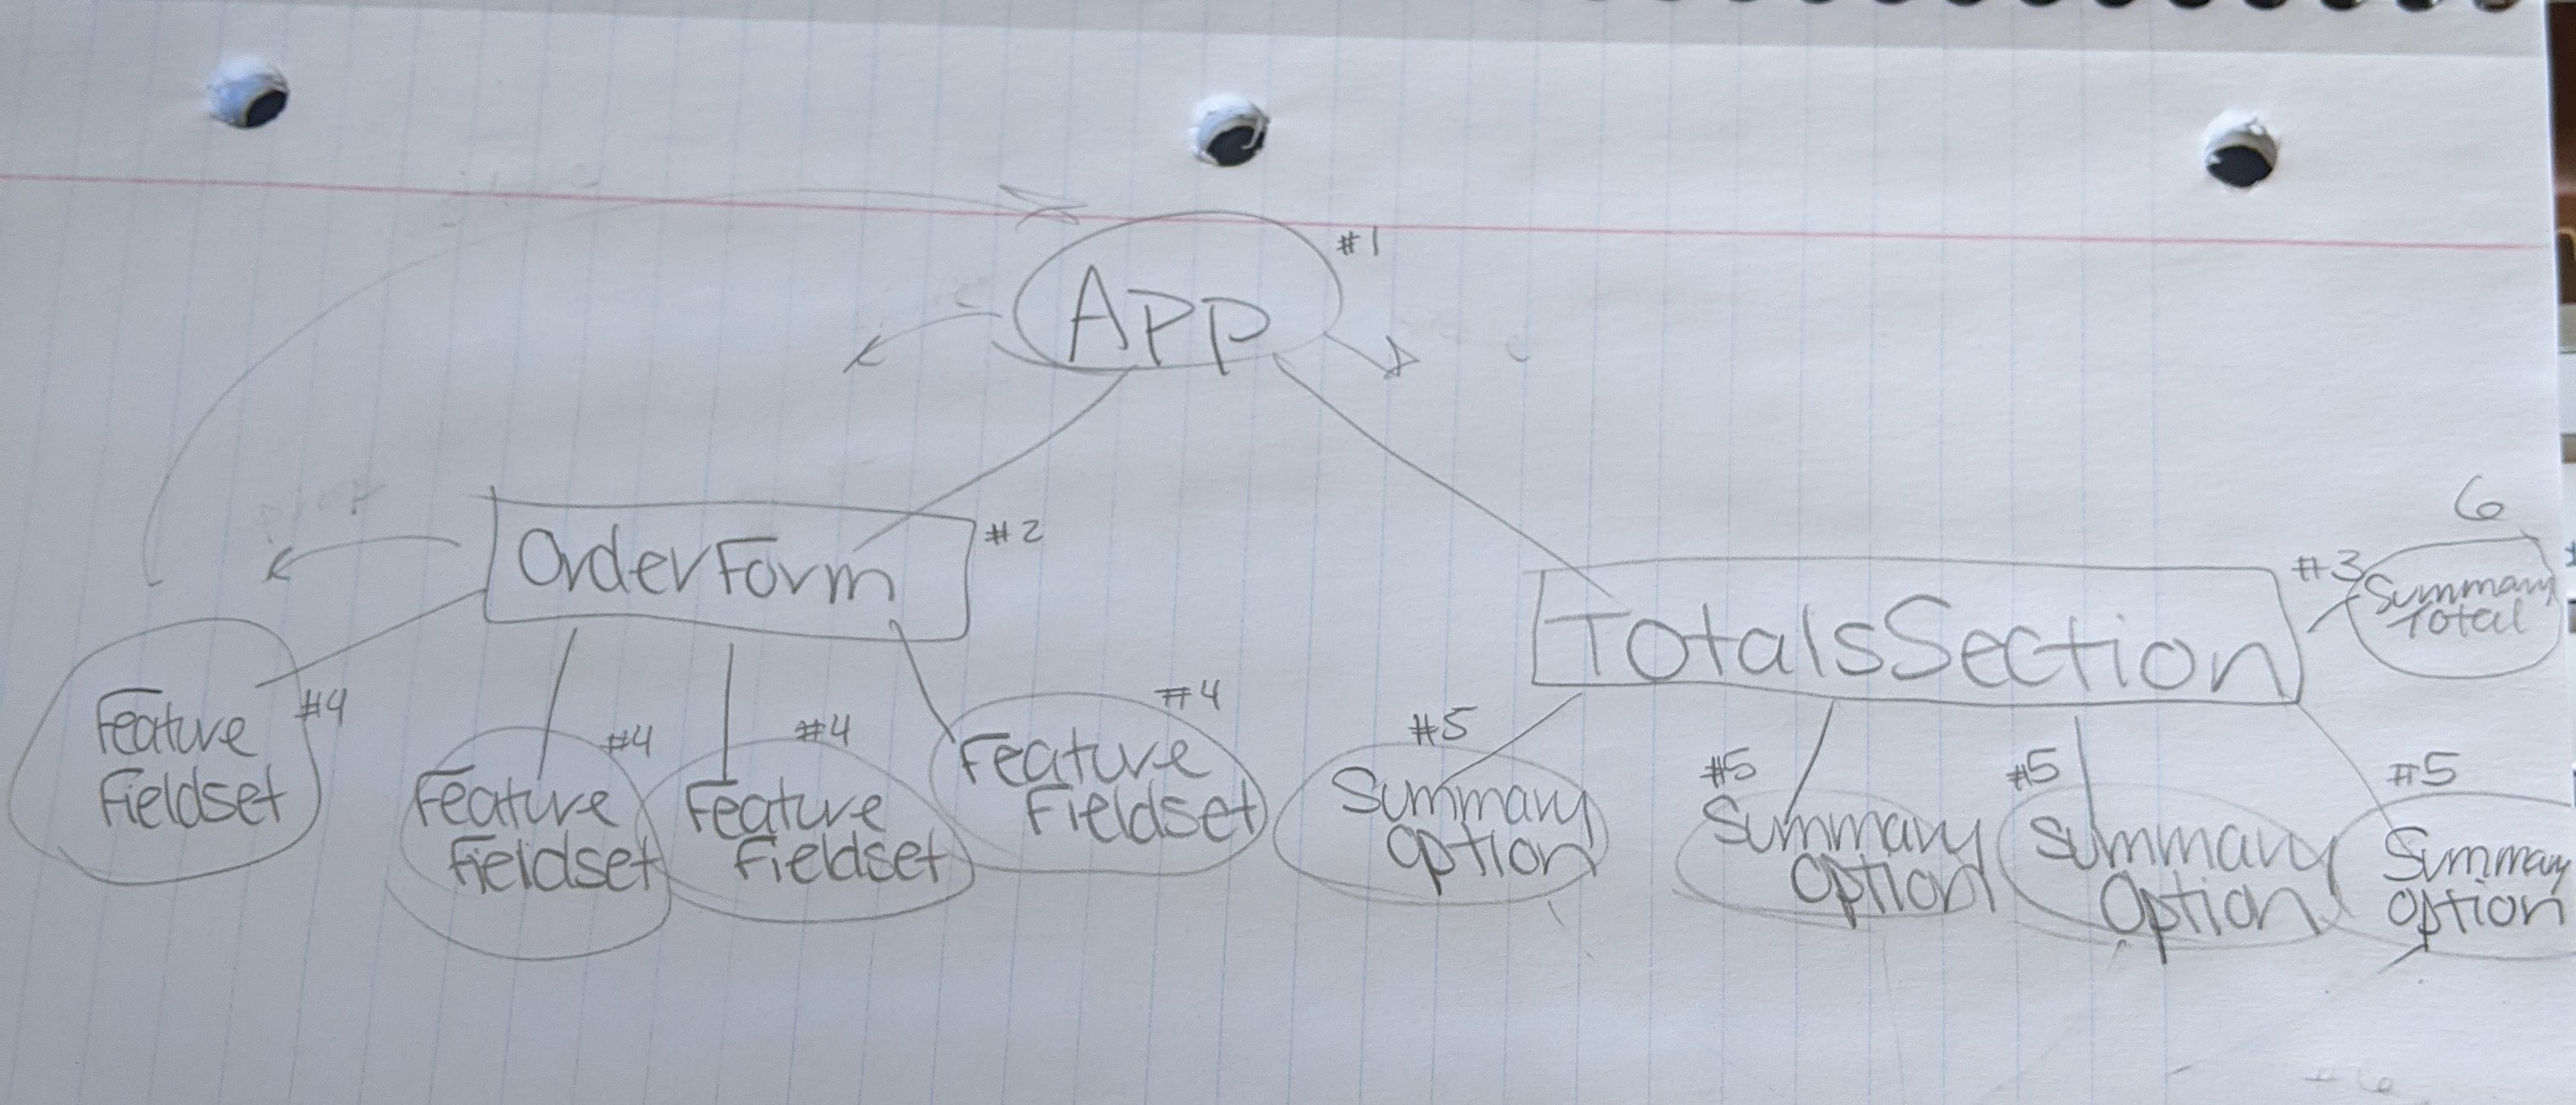 #1
App
OrderForm
#2
TotalsSection
#3
6
Summary
Total
Feature
Fieldset
#4
#4
Feature
Fieldset
#4
Feature
Fieldset
#4
Feature
Fieldset
#5
Summary
Option
#5
Summary
Option
#5
Summary
Option
#5
Summary
Option
#6